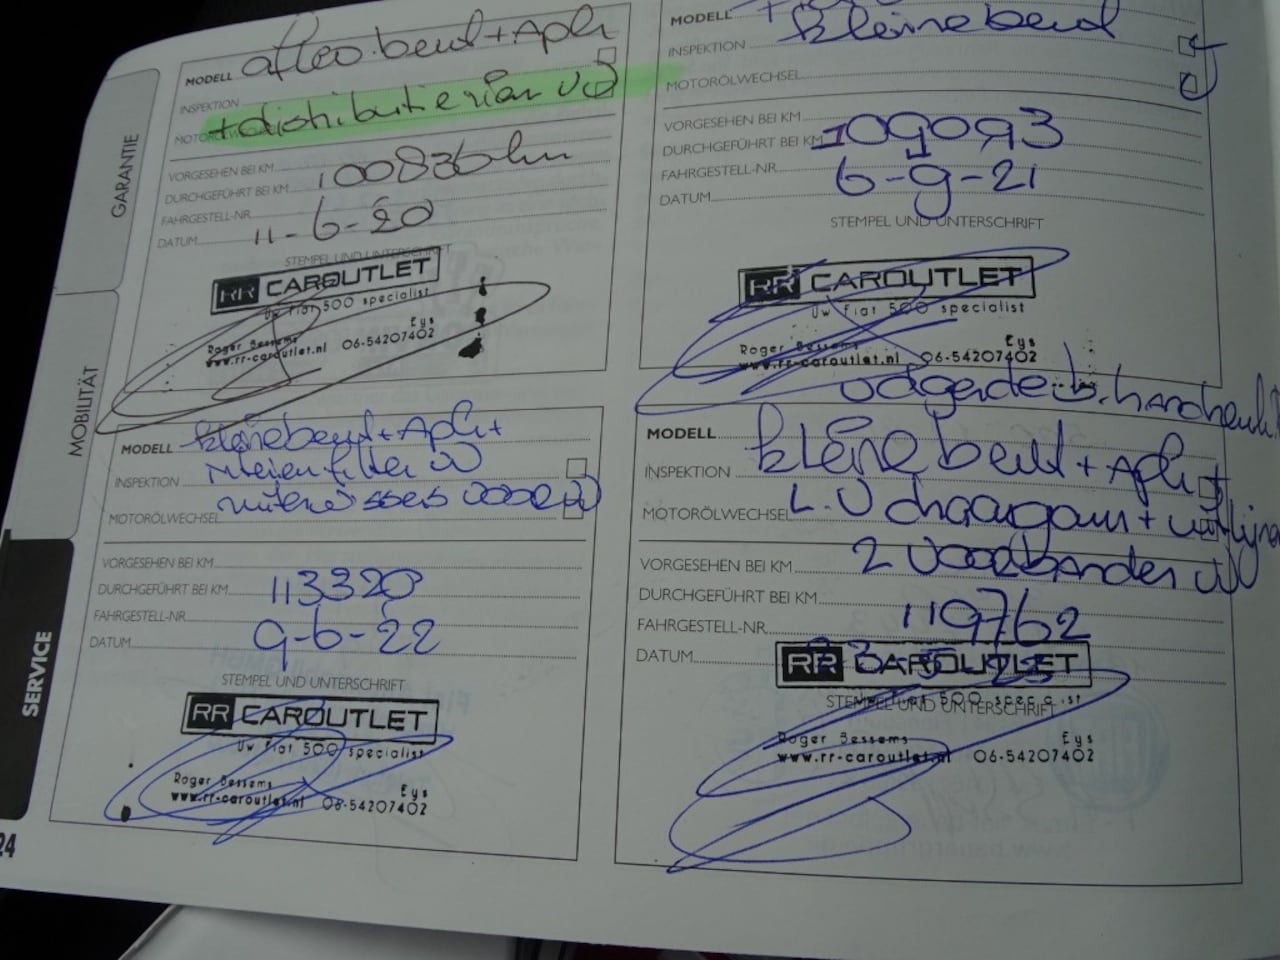 GARANTIE
MOBILITÄT
SERVICE
24
MODELL beurt + Apk
INSPEKTION
+ distributieriem
MOTORÖLWECHSEL
VORGESEHEN BEI KM
DURCHGEFÜHRT BEI KM 100836 km
FAHRGESTELL-NR.
DATUM 11-6-20
STEMPEL UND UNTERSCHRIFT
RR CAROUTLET
Uw fiat 500 specialist
Roger Bessems Eys
www.rr-caroutlet.nl 06-54207402
MODELL kleine beurt
INSPEKTION
MOTORÖLWECHSEL
VORGESEHEN BEI KM
DURCHGEFÜHRT BEI KM 109093
FAHRGESTELL-NR.
DATUM 6-9-21
STEMPEL UND UNTERSCHRIFT
RR CAROUTLET
Uw fiat 500 specialist
Roger Bessems Eys
www.rr-caroutlet.nl 06-54207402
MODELL kleine beurt + Apk +
INSPEKTION filter
MOTORÖLWECHSEL
VORGESEHEN BEI KM
DURCHGEFÜHRT BEI KM 113320
FAHRGESTELL-NR.
DATUM 9-6-22
STEMPEL UND UNTERSCHRIFT
RR CAROUTLET
Uw fiat 500 specialist
Roger Bessems Eys
www.rr-caroutlet.nl 06-54207402
MODELL kleine beurt + Apk +
INSPEKTION
MOTORÖLWECHSEL L.V draagarm +
2 voorbanden
VORGESEHEN BEI KM
DURCHGEFÜHRT BEI KM
FAHRGESTELL-NR. 119762
DATUM
RR CAROUTLET
STEMPEL UND UNTERSCHRIFT
Roger Bessems Eys
www.rr-caroutlet.nl 06-54207402